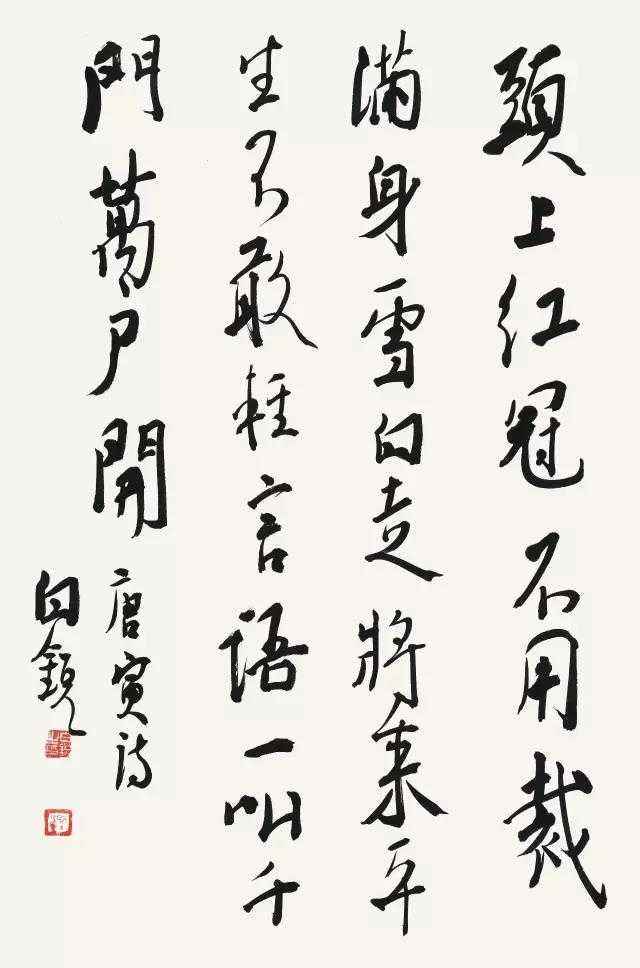 頭上红冠不用裁
滿身雪白走將来平
生不敢輕言語一叫千
門萬户開
唐寅诗
白鏡